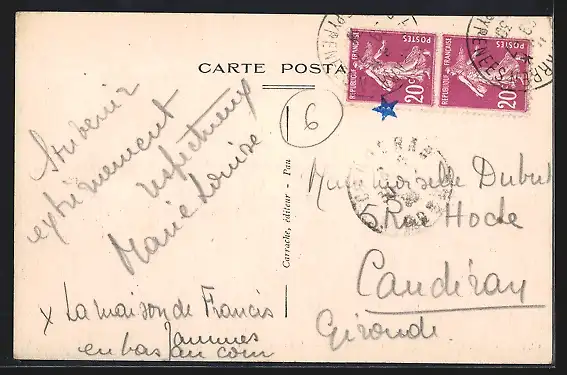 CARTE POSTA
RÉPUBLIQUE FRANÇAISE
POSTES
20c
RÉPUBLIQUE FRANÇAISE
POSTES
20c
16
Souvenir
extrêmement
respectueux
Marie Louise
x La maison de Francis
Jammes
en bas au coin
Carrache, éditeur - Pau
Mademoiselle Dubut
5 Rue Hoche
Caudéran
Gironde